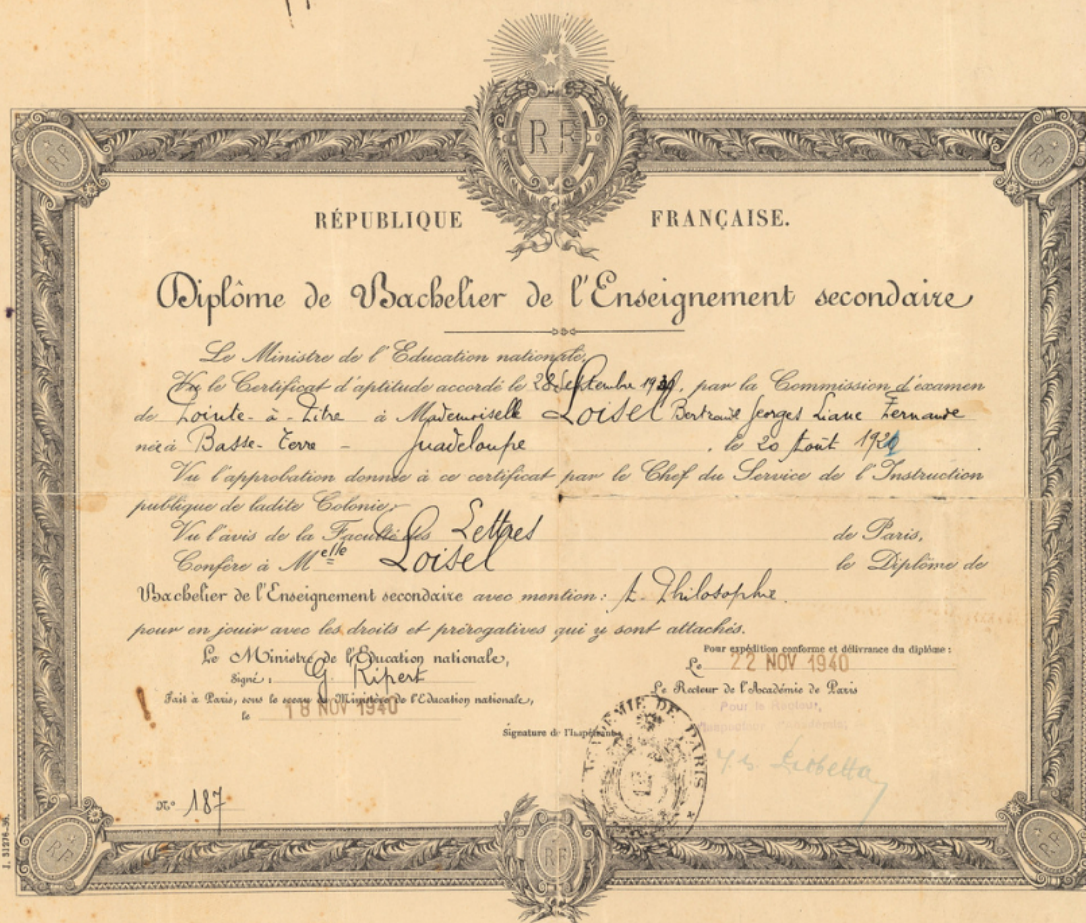 RF
RF
RF
RÉPUBLIQUE FRANÇAISE.
Diplôme de Bachelier de l'Enseignement secondaire
Le Ministre de l'Education nationale,
Vu le Certificat d'aptitude accordé le 28 Septembre 1939, par la Commission d'examen
de Pointe-à-Pitre à Mademoiselle Loisel Bertrande Georges Liane Fernande
née à Basse-Terre - Guadeloupe, le 20 Août 1920
Vu l'approbation donnée à ce certificat par le Chef du Service de l'Instruction
publique de ladite Colonie,
Vu l'avis de la Faculté des Lettres de Paris,
Confère à Melle Loisel le Diplôme de
Bachelier de l'Enseignement secondaire avec mention: A. Philosophie
pour en jouir avec les droits et prérogatives qui y sont attachés.
Le Ministre de l'Education nationale,
Signé: G. Ripert
Fait à Paris, sous le sceau du Ministère de l'Education nationale,
le 18 NOV 1940
Pour expédition conforme et délivrance du diplôme:
Le 22 NOV 1940
Le Recteur de l'Académie de Paris
Pour le Recteur,
Signature de l'Impétrante
ACADEMIE DE PARIS
N° 187
RF
RF
RF